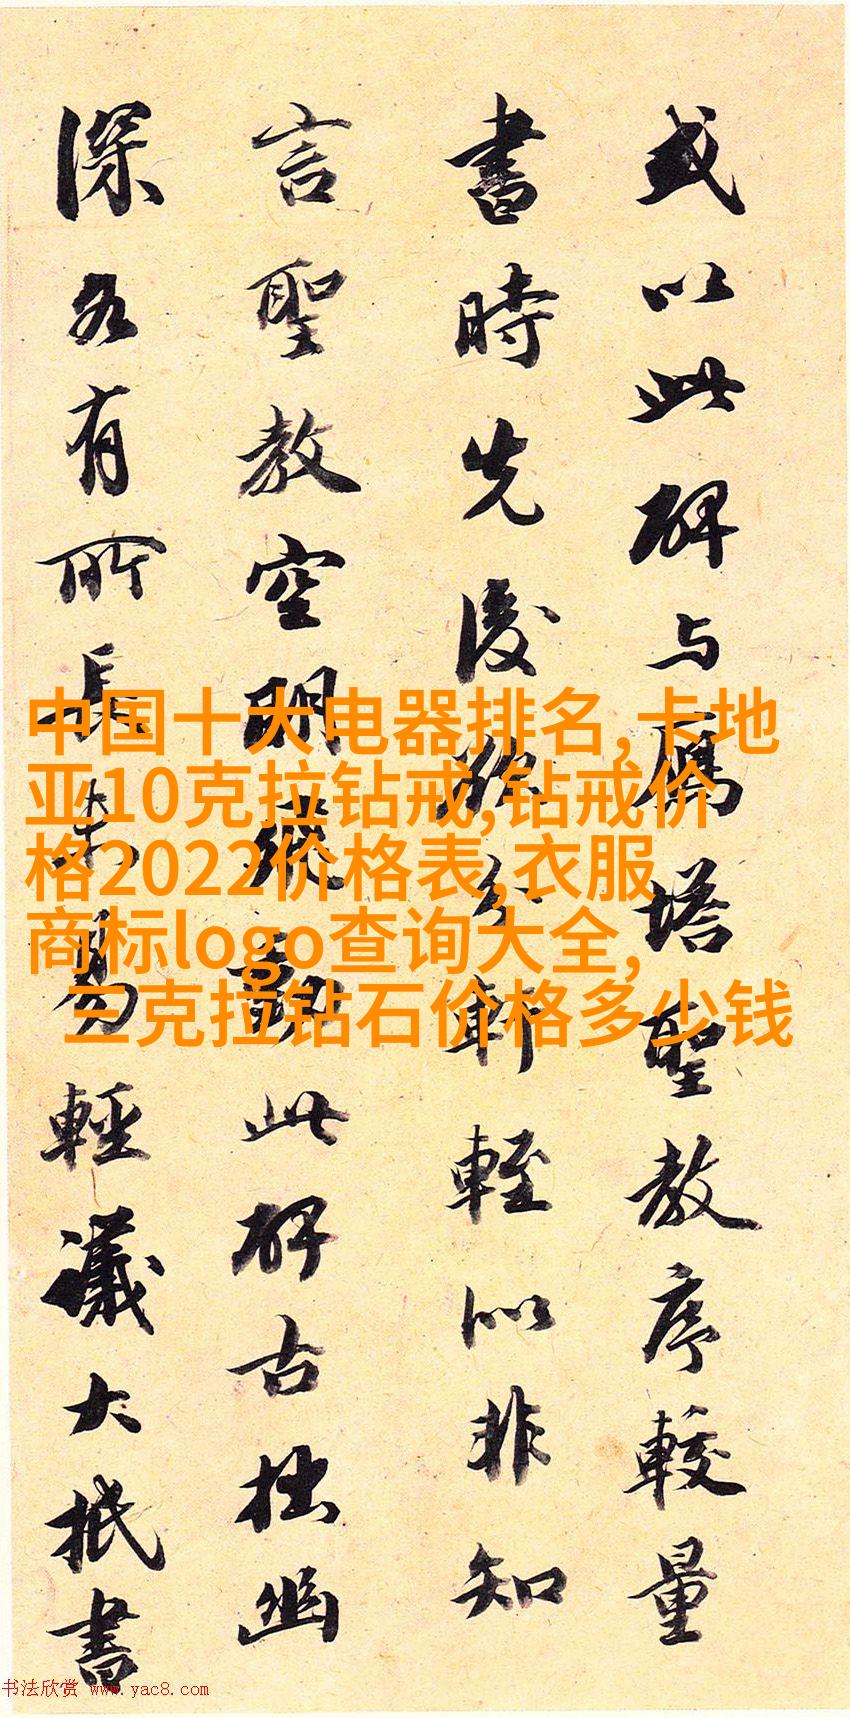 或以此碑与鴈塔聖教序較量
書時先後分軒輊似非知
言聖教空明縱此碑古拙幽
深各有所長未易輕議大抵書
中国十大电器排名,卡地
亚10克拉钻戒,钻戒价
格2022价格表,衣服
商标logo查询大全,
三克拉钻石价格多少钱
书法欣赏 www.yac8.com